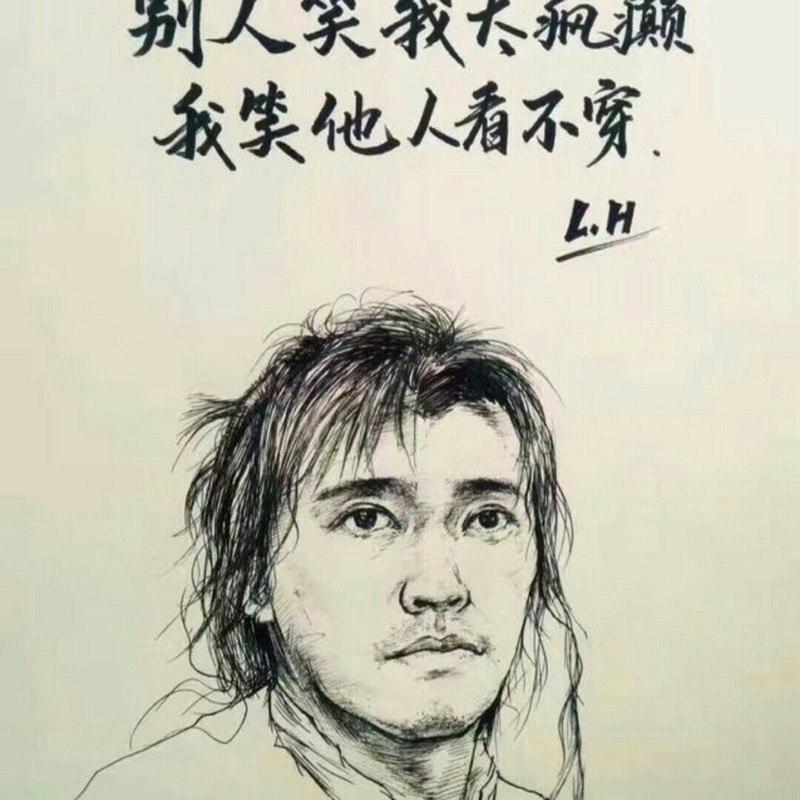 别人笑我太疯癫
我笑他人看不穿.
L.H